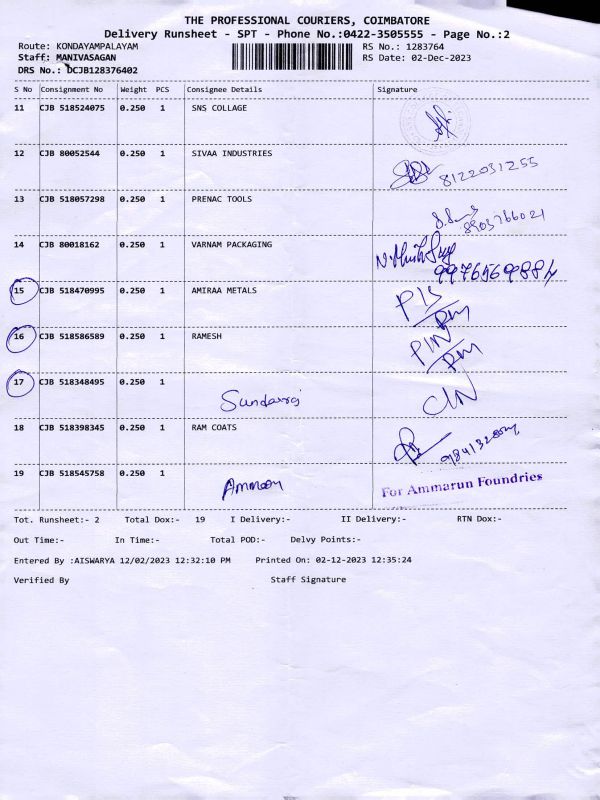 THE PROFESSIONAL COURIERS, COIMBATORE
Delivery Runsheet - SPT - Phone No.:0422-3505555 - Page No.:2
Route: KONDAYAMPALAYAM RS No.: 1283764
Staff: MANIVASAGAN RS Date: 02-Dec-2023
DRS No.: DCJB128376402
S No Consignment No Weight PCS Consignee Details Signature
11 CJB 518524075 0.250 1 SNS COLLAGE
12 CJB 80052544 0.250 1 SIVAA INDUSTRIES 8122031255
13 CJB 518057298 0.250 1 PRENAC TOOLS 8903766021
14 CJB 80018162 0.250 1 VARNAM PACKAGING
15 CJB 518470995 0.250 1 AMIRAA METALS
16 CJB 518586589 0.250 1 RAMESH
17 CJB 518348495 0.250 1
18 CJB 518398345 0.250 1 RAM COATS
19 CJB 518545758 0.250 1 For Ammarun Foundries
Tot. Runsheet:- 2 Total Dox:- 19 I Delivery:- II Delivery:- RTN Dox:-
Out Time:- In Time:- Total POD:- Delvy Points:-
Entered By :AISWARYA 12/02/2023 12:32:10 PM Printed On: 02-12-2023 12:35:24
Verified By Staff Signature